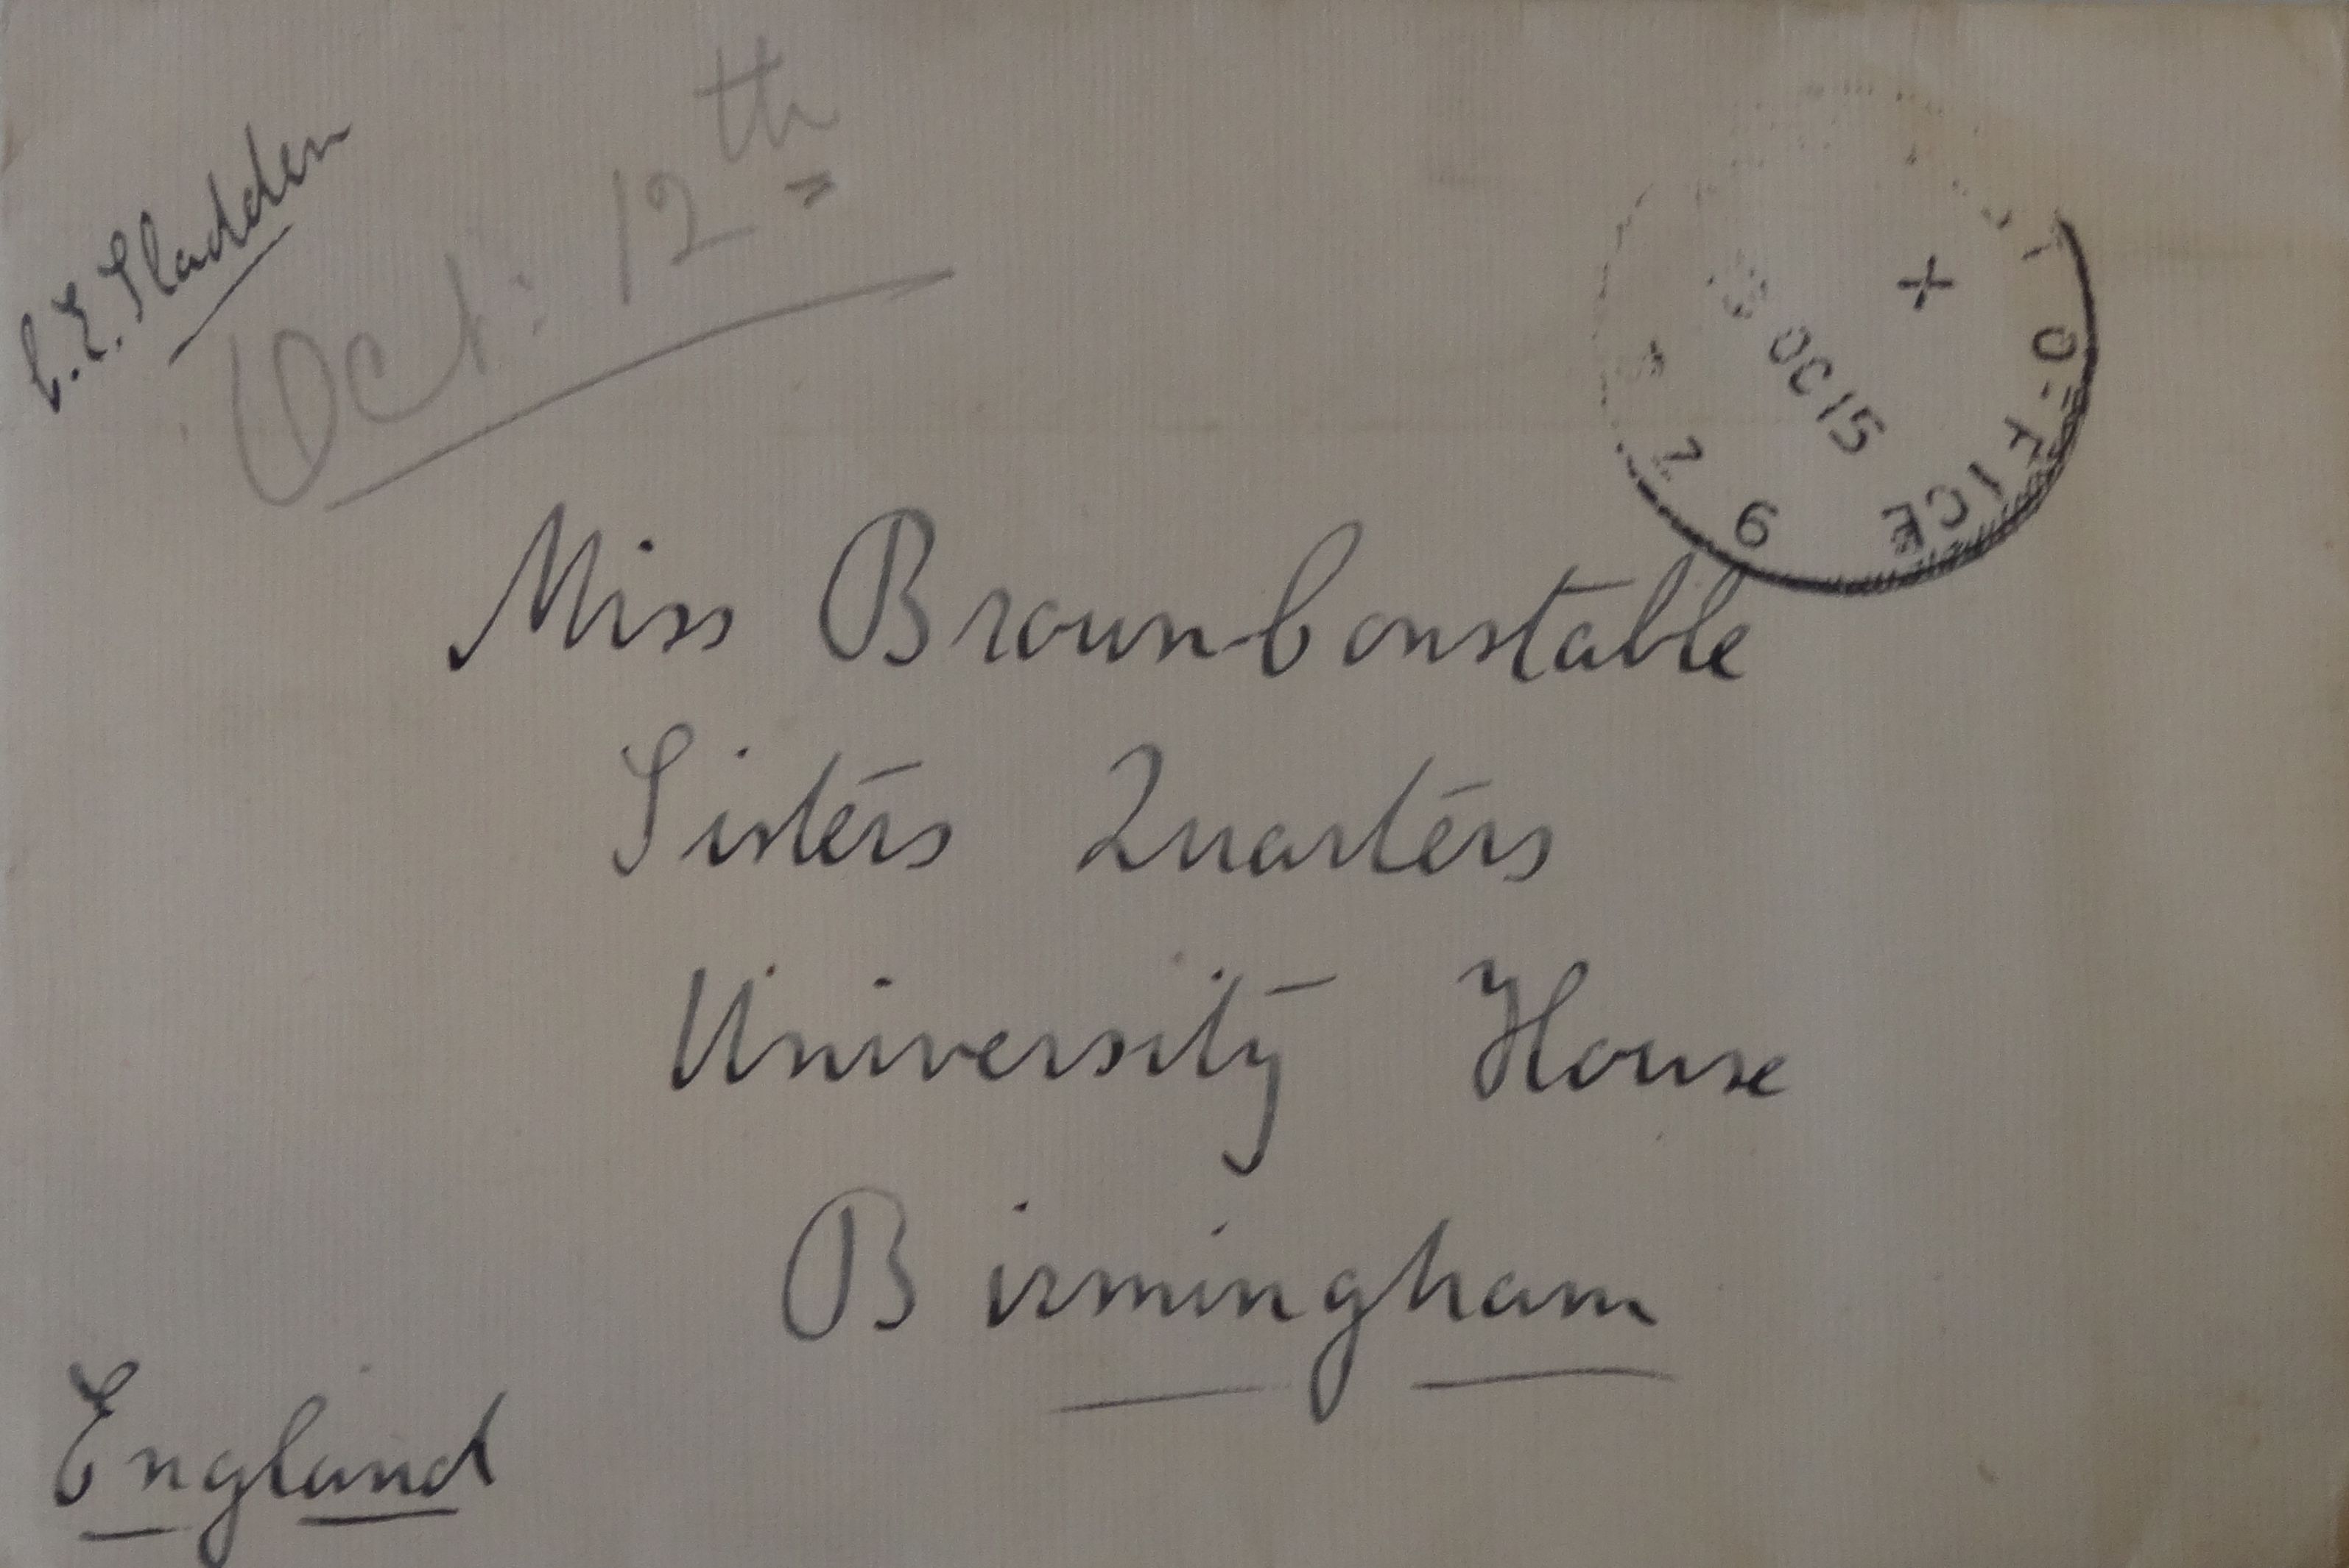 C. E. Sladden
Oct: 12th
Miss Brown Constable
Sisters Quarters
University House
Birmingham
England
X
OC 15
OFFICE